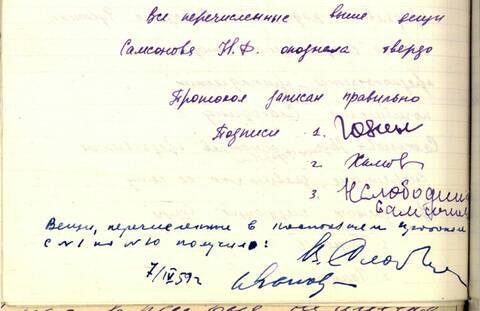 Все перечисленные выше вещи
Самсонова Н.Ф. опознала твердо
Протокол записан правильно
Подписи 1.
2. Хамов
3. НСлободин
Самсонова
Вещи, перечисленные в настоящем протоколе
с №1 по №10 получил:
7/IV 59 г